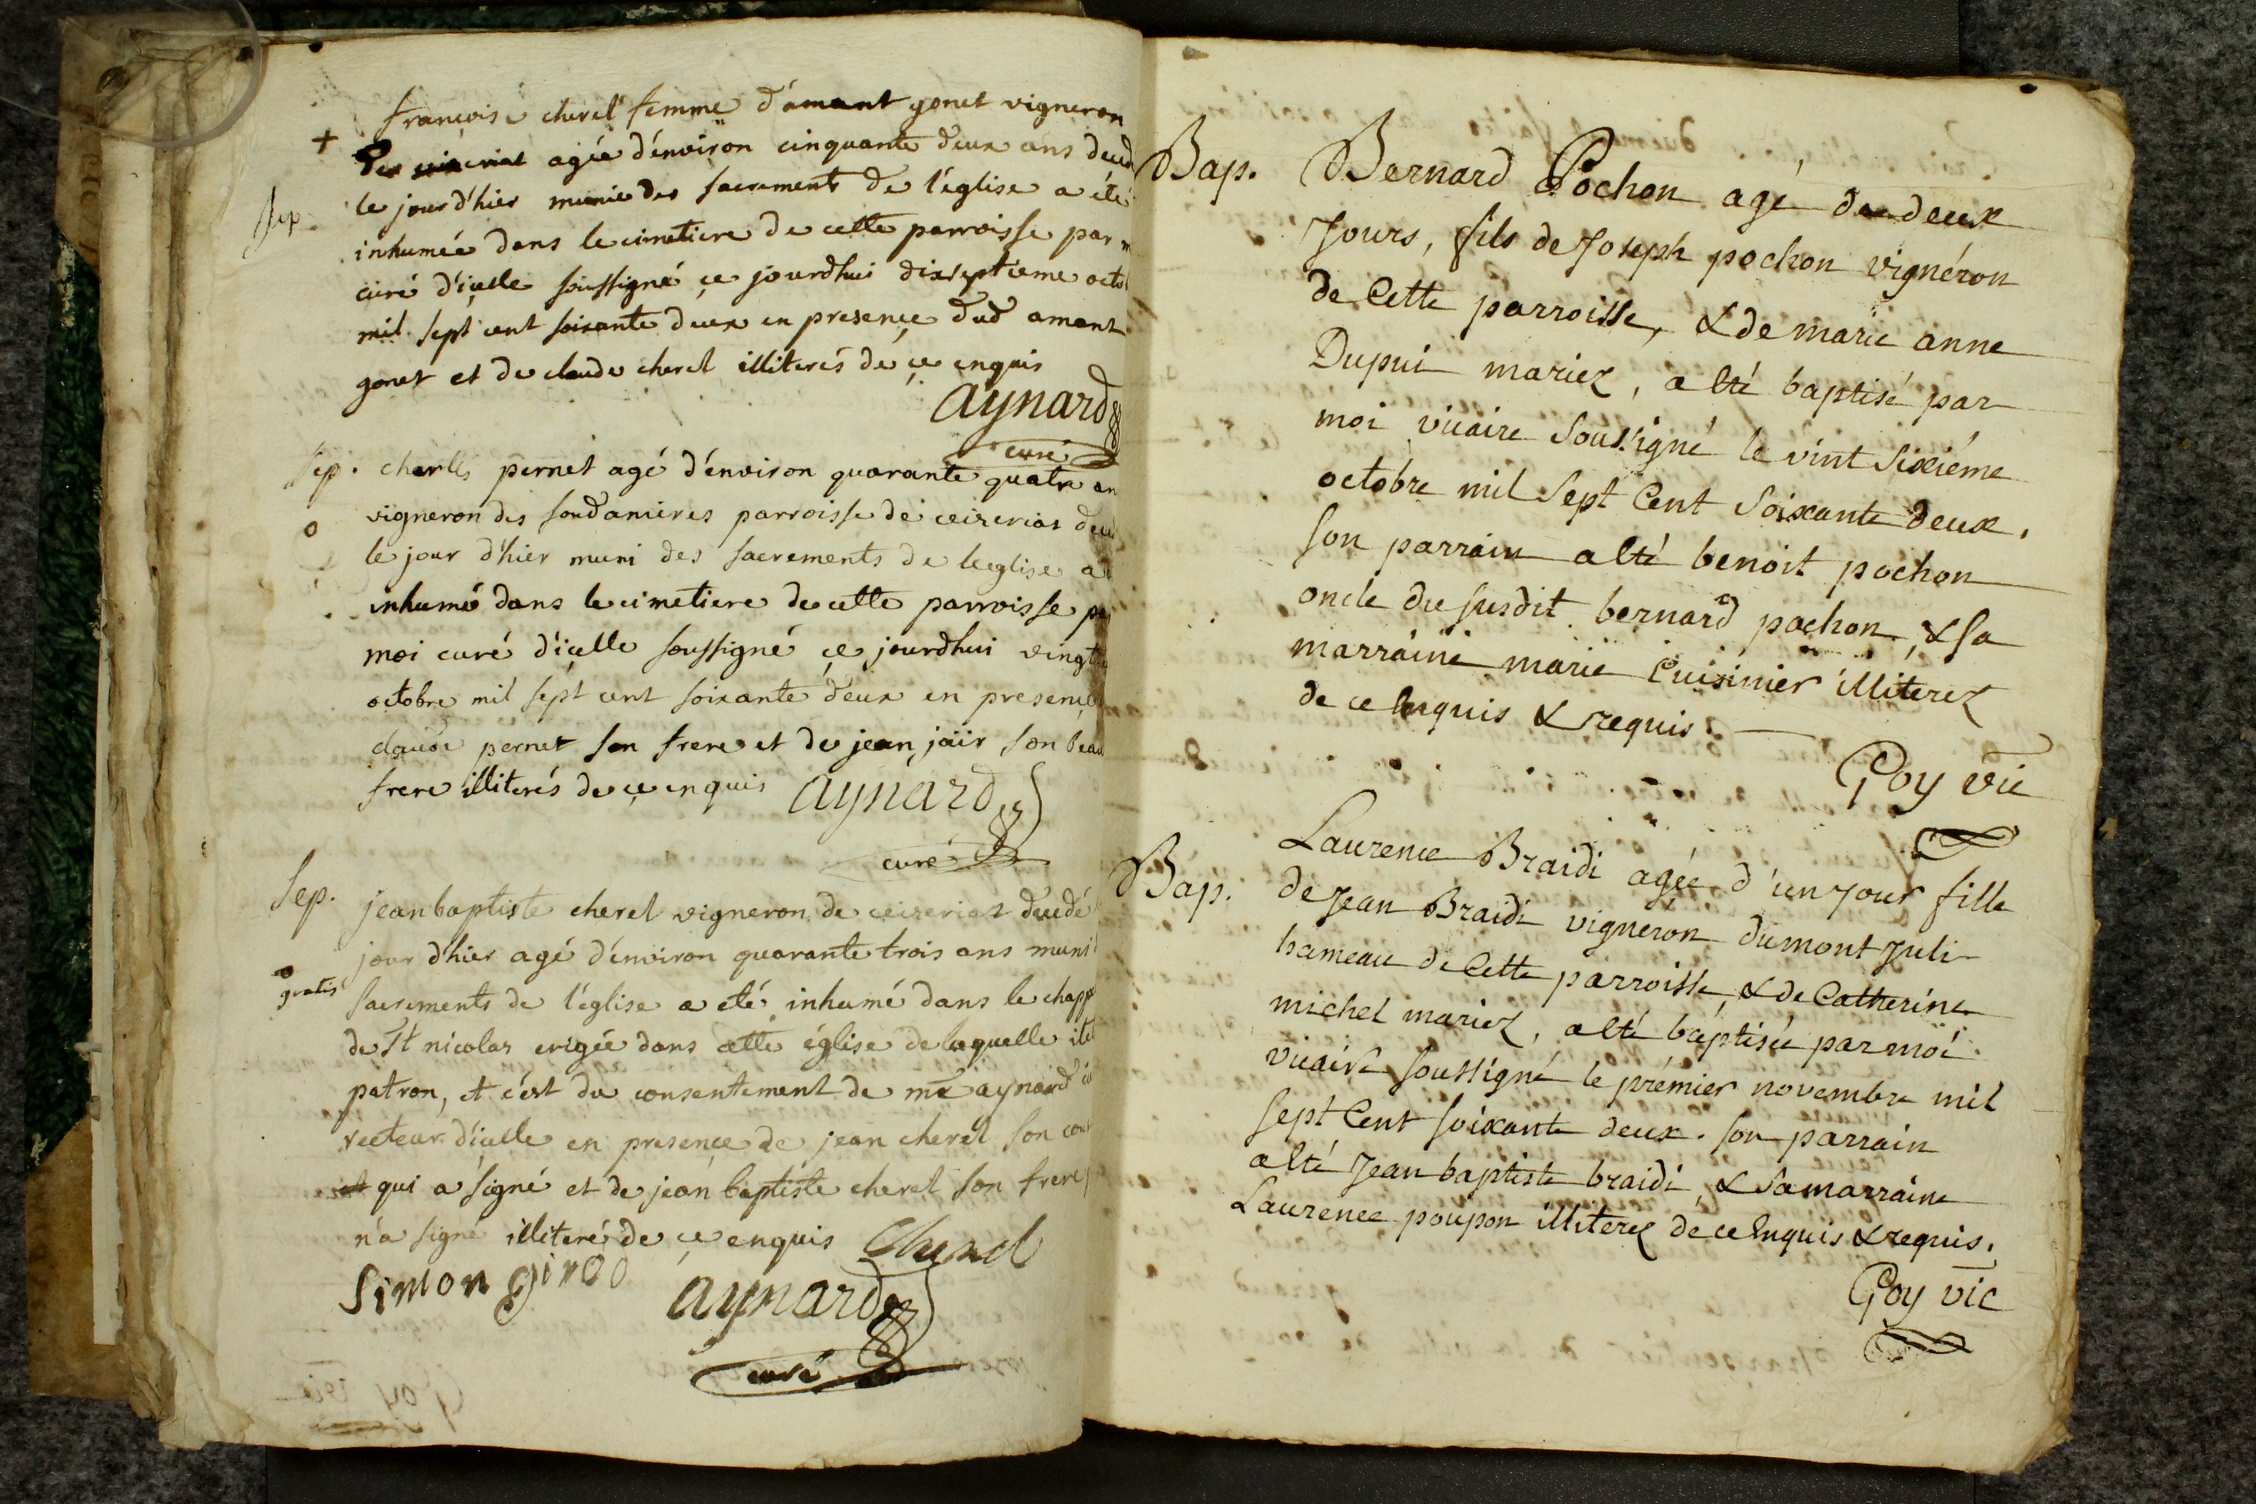 françoise cherel femme d'amant gonet vigneron
+
de ceizeriat agée d'environ cinquante deux ans deced
Sep.
le jour d'hier munie des sacrements de l'église a été
inhumée dans le cimetiere de cette parroisse par m
curé d'icelle soussigné ce jourdhui dixseptieme octo
mil sept cent soixante deux en presence dud amant
gonet et de claude cherel illiterés de ce enquis
aynard
curé
Sep.
charles pernet agé d'environ quarante quatre an
o
vigneron des soudanieres parroisse de ceizeriat dec
le jour d'hier muni des sacrements de leglise a
inhumé dans le cimetiere de cette parroisse p
moi curé d'icelle soussigné ce jourdhui vingt
octobre mil sept cent soixante deux en presence
claude pernet son frere et de jean jaïr son beau
frere illiterés de ce enquis
aynard
curé
Sep.
jean baptiste cherel vigneron de ceizeriat decedé
jour d'hier agé d'environ quarante trois ans muni
o
gratis
sacrements de l'église a été inhumé dans le chapp
de St nicolas erigée dans cette église de laquelle il
patron, et c'est du consentement de mre aynard
recteur d'icelle en presence de jean cherel son cou
et qui a signé et de jean baptiste cherel son frere
n'a signé illiteré de ce enquis
Cherel
Simon girod
aynard
curé
Bap.
Bernard Pochon agé de deux
Jours, fils de Joseph pochon vignéron
de Cette parroisse, & de marie anne
Dupui mariez, a Eté baptisé par
moi vicaire Soussigné le vint Sixiéme
octobre mil Sept Cent Soixante deux.
Son parrain a Eté benoit pochon
oncle du susdit bernard pochon, & Sa
marraine marie Cuisinier illiterez
de ce Enquis & requis.
Goy vic
Bap.
Laurence Braidi agée d'un Jour fille
de Jean Braidi vigneron du mont Juli
hameau de Cette parroisse, & de Catherine
michel mariez, a Eté baptisée par moi
vicaire soussigné le prémier novembre mil
Sept Cent soixante deux. Son parrain
a Eté Jean baptiste braidi, & Sa marraine
Laurence poupon illiterez de ce Enquis & requis.
Goy vic